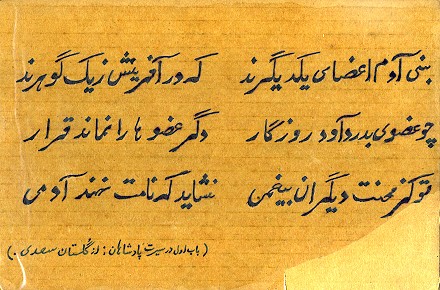 بنی آدم اعضای یکدیگرند که در آفرینش ز یک گوهرند
چو عضوی بدرد آورد روزگار دگر عضوها را نماند قرار
تو کز محنت دیگران بیغمی نشاید که نامت نهند آدمی
(باب اول در سیرت پادشاهان: از گلستان سعدی.)